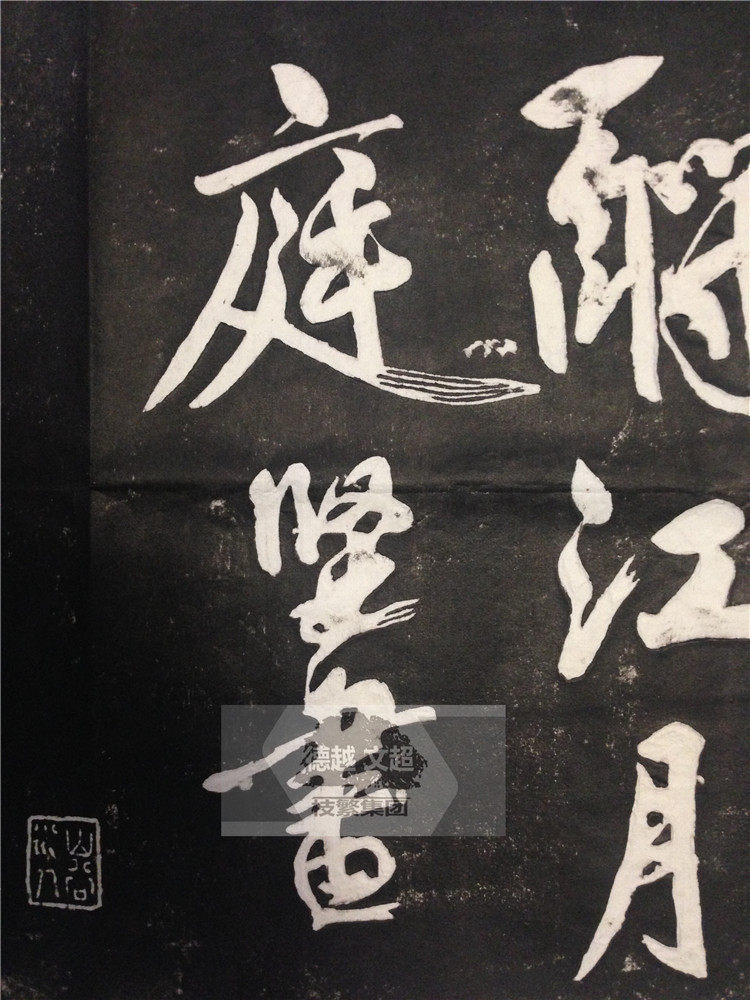 酹江月
庭堅書
德越 文超
技繁集团